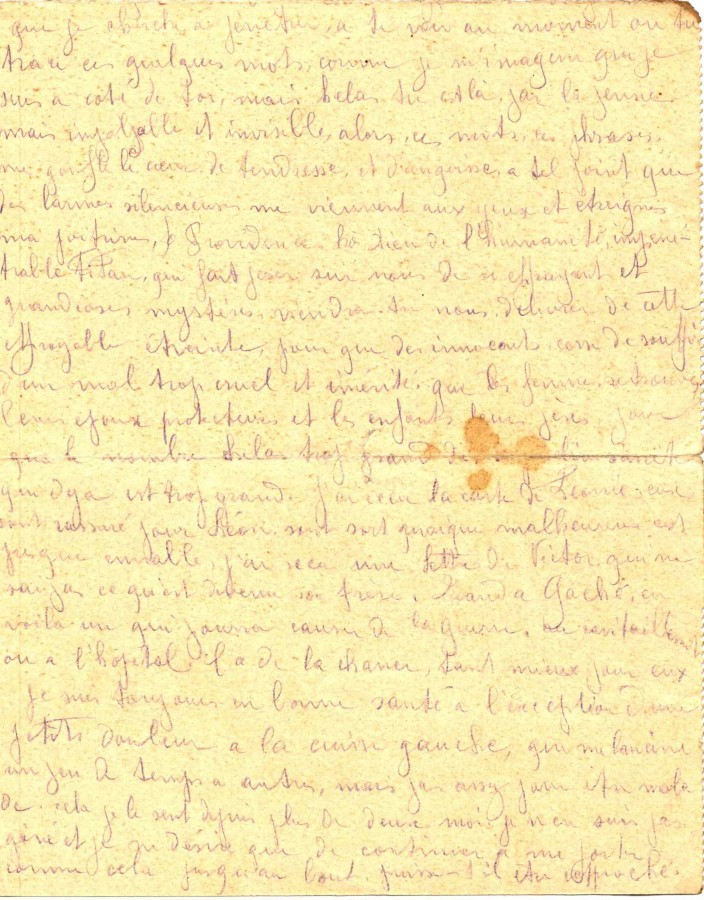 que je cherche a penetrer, a te voir au moment ou tu
trace ces quelques mots, comme je m'imagine que je
suis a coté de toi, mais helas tu est la, par la pensee
mais impalpable et invisible, alors, ces mots, ces phrases
me gonfle le cœur de tendresse, et d'angoisse, a tel point que
des larmes silencieuses me viennent aux yeux et
ma poitrine, o Providence, ho Dieu de l'humanité, impene-
trable Titan, qui fait peser sur nous de si effrayant et
grandioses mystères, viendra tu nous delivrer de cette
effroyable étreinte, pour que des innocent cesse de souffrir
d'un mal trop cruel et imérité, que les femme retrouve
leurs epoux protecteurs et les enfants leurs pères, pour
que le nombre helas trop grand des
qui deja est trop grand. j'ai recu la carte de Leonie,
sont rassuré pour Léon. sont sort quoique malheureux est
presque enviable, j'ai recu une lettre de Victor, qui ne
sait pas ce qu'est devenu son frere. Quand a Gaché, en
voila un qui pourra causer de la guerre, au ravitaillement
ou a l'hopital il a de la chance, tant mieux pour eux
je suis toujours en bonne santé a l'exception d'une
petite douleur a la cuisse gauche, qui me lancine
un peu de temps a autres, mais pas assez pour etre mala
de. cela je le sent depuis plus de deux mois je n'en suis pas
gené et je ne désire que de continuer a me porter
comme cela jusqu'au bout. puisse-t'il etre approché.